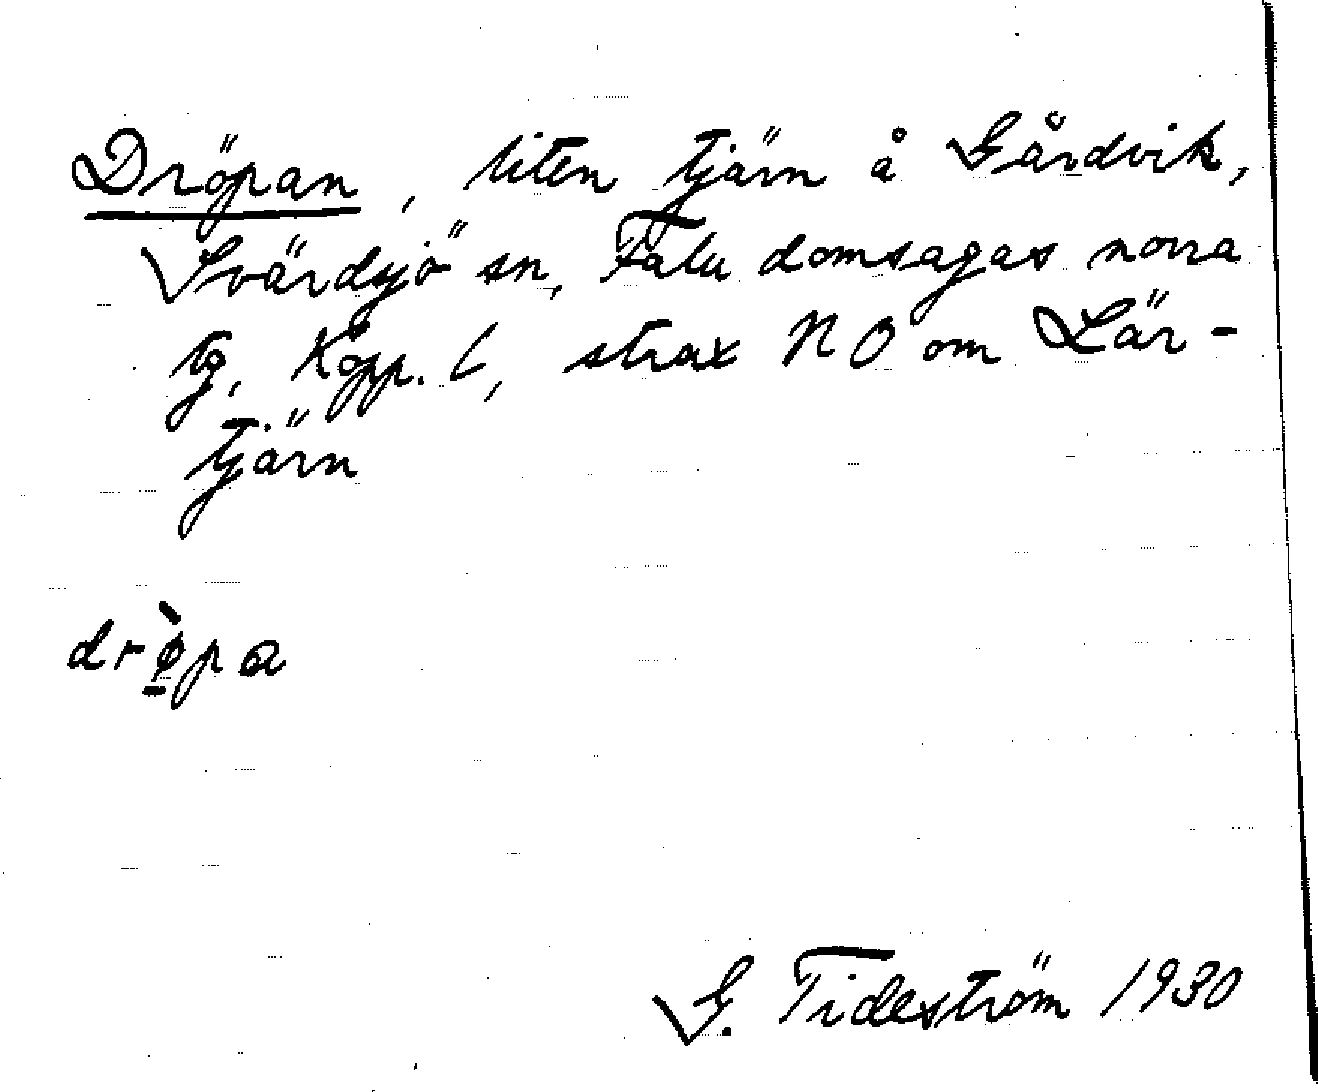 Dröpan, liten tjärn å Gårdvik,
Svärdsjö sn, Falu domsagas norra
tg, Kopp. l, strax NO om Lär-
tjärn
drø̀pa
G. Tideström 1930